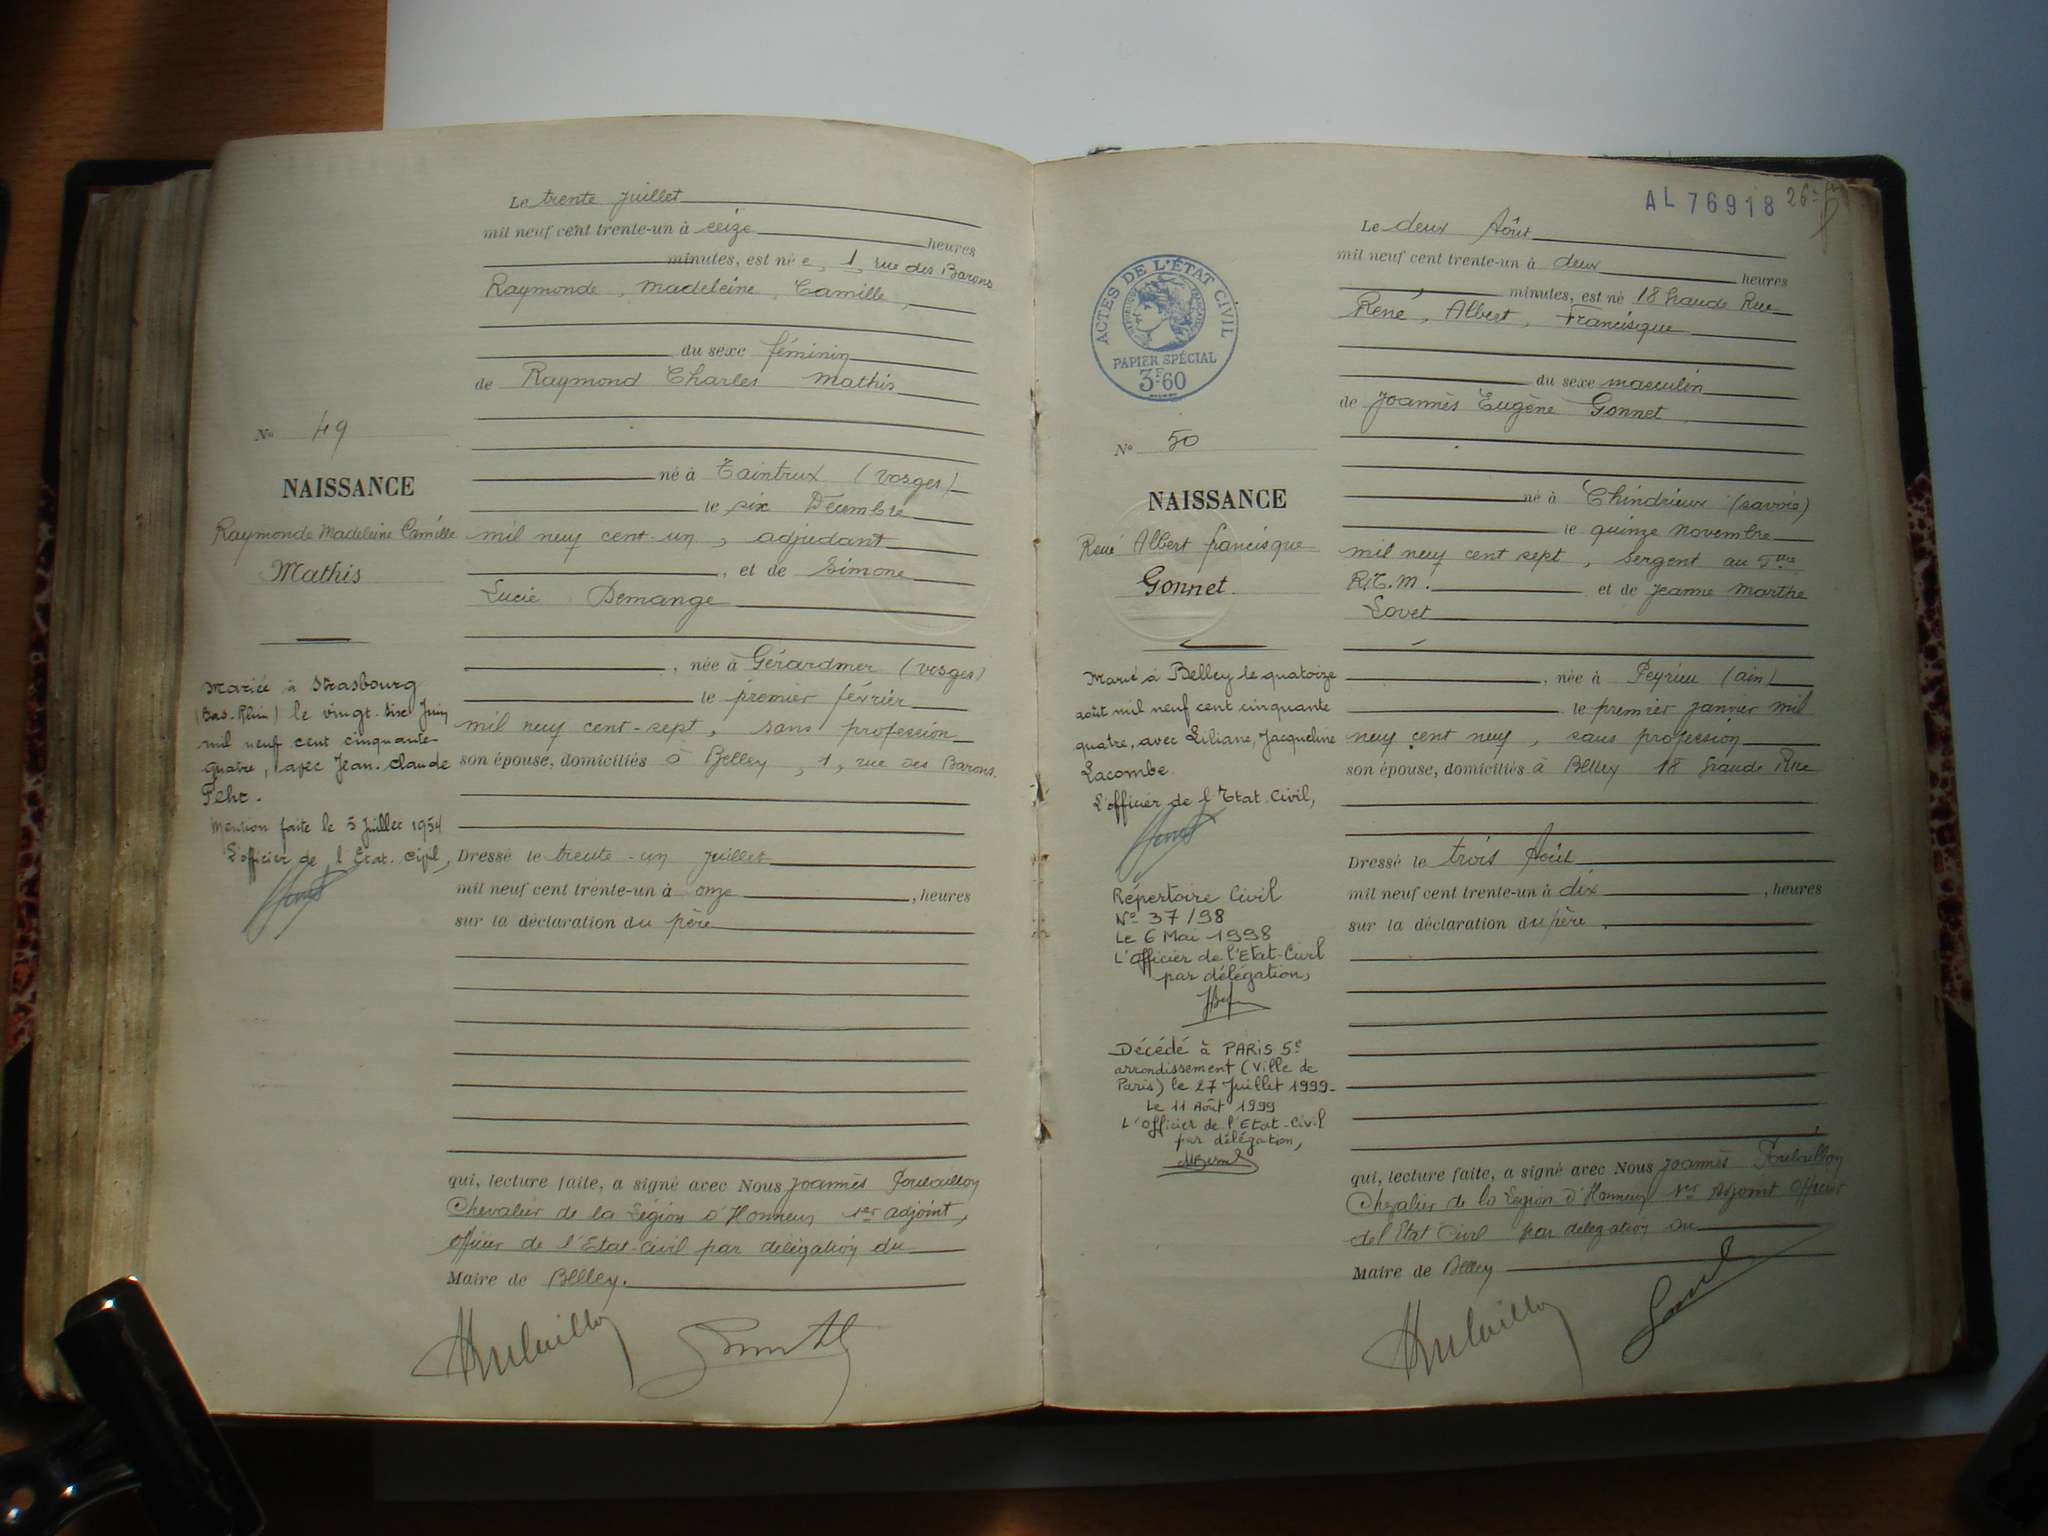 Le trente juillet
mil neuf cent trente-un à seize heures
minutes, est né e, 1, rue des Barons
Raymonde, Madeleine, Camille,
du sexe féminin
de Raymond Charles Mathis
né à Taintrux (Vosges)
le six Décembre
mil neuf cent-un, adjudant
, et de Simone
Lucie Demange
, née à Gérardmer (Vosges)
le premier février
mil neuf cent-sept, sans profession
son épouse, domiciliés à Belley, 1, rue des Barons.
Dressé le trente-un juillet
mil neuf cent trente-un à onze , heures
sur la déclaration du père
qui, lecture faite, a signé avec Nous Joannès
Chevalier de la Légion d'Honneur 1er adjoint,
officier de l'Etat-Civil par délégation du
Maire de Belley.
No 49
NAISSANCE
Raymonde Madeleine Camille
Mathis
Mariée à Strasbourg
(Bas-Rhin) le vingt-six Juin
mil neuf cent cinquante-
quatre, avec Jean-Claude
Mention faite le 5 Juillet 1954
L'officier de l'Etat-Civil,
AL 76918
Le deux Août
mil neuf cent trente-un à deux heures
minutes, est né 18 Grande Rue
René, Albert, Francisque
du sexe masculin
de Joannès Eugène Gonnet
né à Chindrieux (Savoie)
le quinze Novembre
mil neuf cent sept, sergent au
et de Jeanne Marthe
Lovet
, née à Peyrieu (Ain)
le premier janvier mil
neuf cent neuf, sans profession
son épouse, domiciliés à Belley 18 Grande Rue
Dressé le trois Août
mil neuf cent trente-un à dix , heures
sur la déclaration du père.
qui, lecture faite, a signé avec Nous Joannès
Chevalier de la Légion d'Honneur 1er Adjoint Officier
de l'Etat Civil par délégation du
Maire de Belley
ACTES DE L'ÉTAT CIVIL
RÉPUBLIQUE FRANÇAISE
PAPIER SPÉCIAL
3F60
No 50
NAISSANCE
René Albert francisque
Gonnet
Marié à Belley le quatorze
août mil neuf cent cinquante
quatre, avec Liliane, Jacqueline
Lacombe.
L'officier de l'Etat Civil,
Répertoire Civil
No 37/98
Le 6 Mai 1998
L'Officier de l'Etat-Civil
par délégation,
Décédé à PARIS 5e
arrondissement (Ville de
Paris) le 27 Juillet 1999-
Le 11 Août 1999
L'Officier de l'Etat-Civil
par délégation,